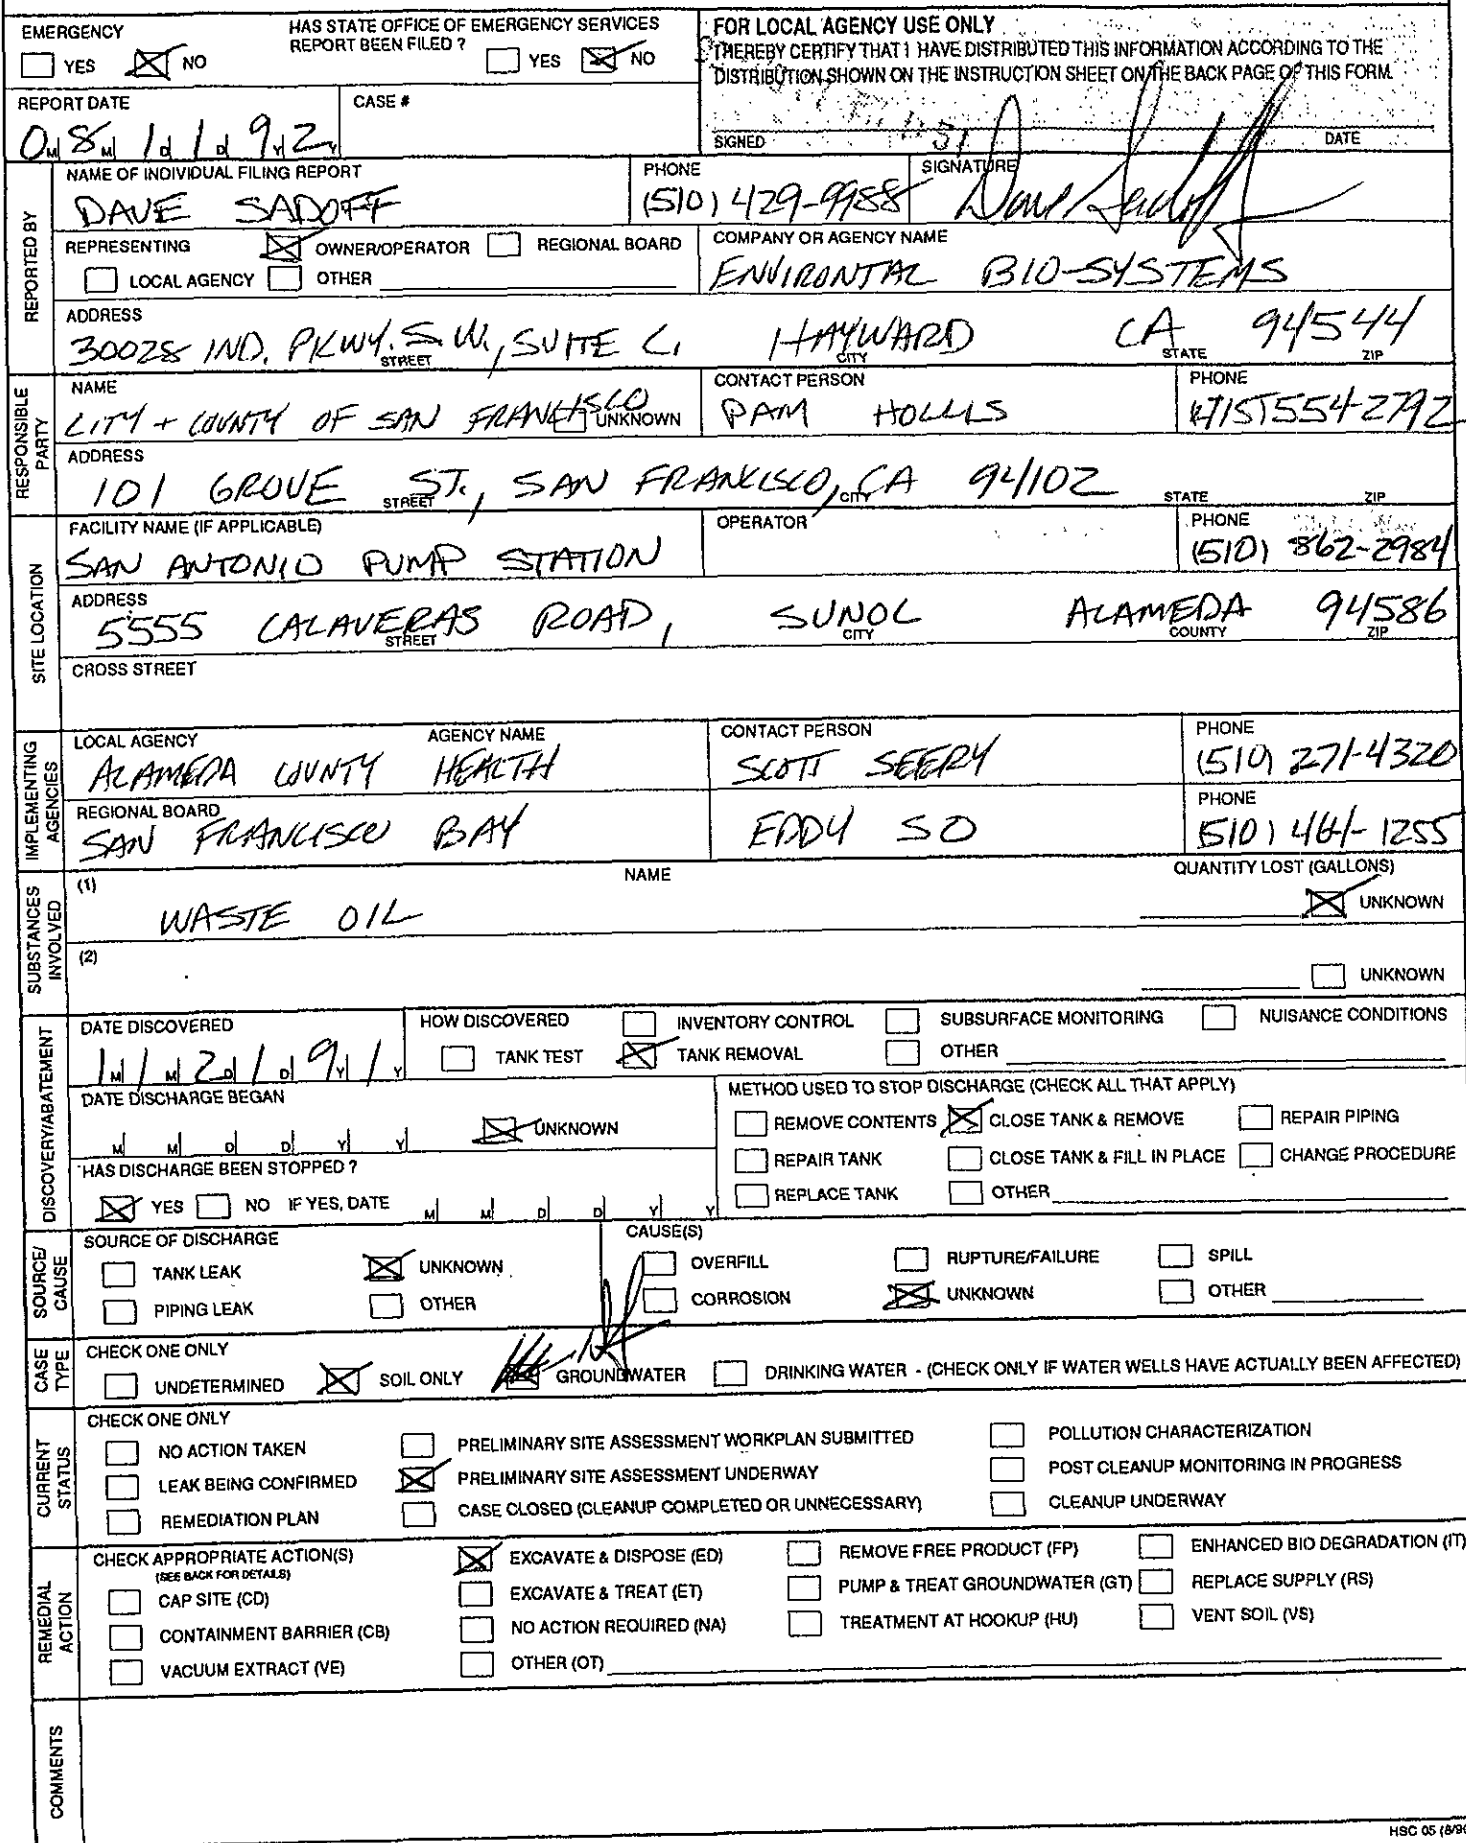 EMERGENCY
YES NO
HAS STATE OFFICE OF EMERGENCY SERVICES
REPORT BEEN FILED ?
YES NO
FOR LOCAL AGENCY USE ONLY
I HEREBY CERTIFY THAT I HAVE DISTRIBUTED THIS INFORMATION ACCORDING TO THE
DISTRIBUTION SHOWN ON THE INSTRUCTION SHEET ON THE BACK PAGE OF THIS FORM.
SIGNED DATE
REPORT DATE
0 M 8 M 1 D 1 D 9 Y 2 Y
CASE #
REPORTED BY
NAME OF INDIVIDUAL FILING REPORT
DAVE SADOFF
PHONE
(510) 429-9988
SIGNATURE
Dave Sadoff
REPRESENTING OWNER/OPERATOR REGIONAL BOARD
LOCAL AGENCY OTHER
COMPANY OR AGENCY NAME
ENVIRONTAL BIO-SYSTEMS
ADDRESS
30028 IND. PKWY. S.W., SUITE C, HAYWARD CA 94544
STREET CITY STATE ZIP
RESPONSIBLE PARTY
NAME
CITY + COUNTY OF SAN FRANCISCO
UNKNOWN
CONTACT PERSON
PAM HOLLIS
PHONE
554-2792
ADDRESS
101 GROVE ST., SAN FRANCISCO, CA 94102
STREET CITY STATE ZIP
SITE LOCATION
FACILITY NAME (IF APPLICABLE)
SAN ANTONIO PUMP STATION
OPERATOR
PHONE
(510) 862-2984
ADDRESS
5555 CALAVERAS ROAD, SUNOL ALAMEDA 94586
STREET CITY COUNTY ZIP
CROSS STREET
IMPLEMENTING AGENCIES
LOCAL AGENCY AGENCY NAME
ALAMEDA COUNTY HEALTH
CONTACT PERSON
SCOTT SEERY
PHONE
(510) 271-4320
REGIONAL BOARD
SAN FRANCISCO BAY
EDDY SO
PHONE
(510) 464-1255
SUBSTANCES INVOLVED
(1) NAME QUANTITY LOST (GALLONS)
WASTE OIL
UNKNOWN
(2)
UNKNOWN
DISCOVERY/ABATEMENT
DATE DISCOVERED
1 M 1 M 2 D 1 D 9 Y 1 Y
HOW DISCOVERED INVENTORY CONTROL SUBSURFACE MONITORING NUISANCE CONDITIONS
TANK TEST TANK REMOVAL OTHER
DATE DISCHARGE BEGAN
M M D D Y Y UNKNOWN
HAS DISCHARGE BEEN STOPPED ?
YES NO IF YES, DATE M M D D Y Y
METHOD USED TO STOP DISCHARGE (CHECK ALL THAT APPLY)
REMOVE CONTENTS CLOSE TANK & REMOVE REPAIR PIPING
REPAIR TANK CLOSE TANK & FILL IN PLACE CHANGE PROCEDURE
REPLACE TANK OTHER
SOURCE/ CAUSE
SOURCE OF DISCHARGE
TANK LEAK UNKNOWN
PIPING LEAK OTHER
CAUSE(S)
OVERFILL RUPTURE/FAILURE SPILL
CORROSION UNKNOWN OTHER
CASE TYPE
CHECK ONE ONLY
UNDETERMINED SOIL ONLY GROUNDWATER DRINKING WATER - (CHECK ONLY IF WATER WELLS HAVE ACTUALLY BEEN AFFECTED)
CURRENT STATUS
CHECK ONE ONLY
NO ACTION TAKEN PRELIMINARY SITE ASSESSMENT WORKPLAN SUBMITTED POLLUTION CHARACTERIZATION
LEAK BEING CONFIRMED PRELIMINARY SITE ASSESSMENT UNDERWAY POST CLEANUP MONITORING IN PROGRESS
REMEDIATION PLAN CASE CLOSED (CLEANUP COMPLETED OR UNNECESSARY) CLEANUP UNDERWAY
REMEDIAL ACTION
CHECK APPROPRIATE ACTION(S)
(SEE BACK FOR DETAILS)
EXCAVATE & DISPOSE (ED) REMOVE FREE PRODUCT (FP) ENHANCED BIO DEGRADATION (IT)
CAP SITE (CD) EXCAVATE & TREAT (ET) PUMP & TREAT GROUNDWATER (GT) REPLACE SUPPLY (RS)
CONTAINMENT BARRIER (CB) NO ACTION REQUIRED (NA) TREATMENT AT HOOKUP (HU) VENT SOIL (VS)
VACUUM EXTRACT (VE) OTHER (OT)
COMMENTS
HSC 05 (8/90